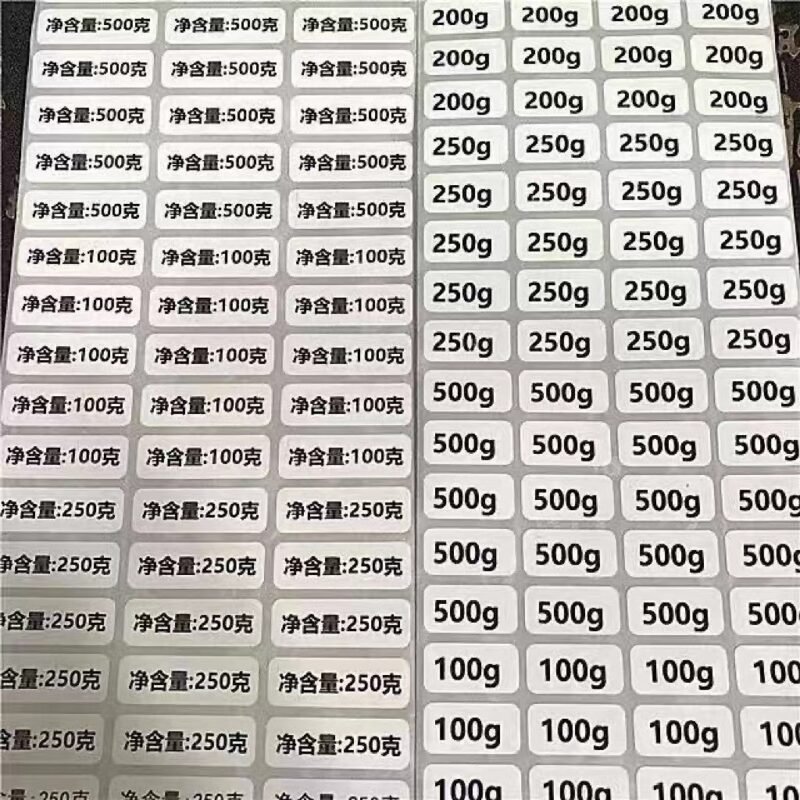 净含量:500克 净含量:500克 净含量:500克
净含量:500克 净含量:500克 净含量:500克
净含量:500克 净含量:500克 净含量:500克
净含量:500克 净含量:500克 净含量:500克
净含量:500克 净含量:500克 净含量:500克
净含量:100克 净含量:100克 净含量:100克
净含量:100克 净含量:100克 净含量:100克
净含量:100克 净含量:100克 净含量:100克
净含量:100克 净含量:100克 净含量:100克
净含量:100克 净含量:100克 净含量:100克
净含量:250克 净含量:250克 净含量:250克
净含量:250克 净含量:250克 净含量:250克
净含量:250克 净含量:250克 净含量:250克
含量:250克 净含量:250克 净含量:250克
含量:250克 净含量:250克 净含量:250克
200g 200g 200g 200g
200g 200g 200g 200g
200g 200g 200g 200g
250g 250g 250g 250g
250g 250g 250g 250g
250g 250g 250g 250g
250g 250g 250g 250g
250g 250g 250g 250g
500g 500g 500g 500g
500g 500g 500g 500g
500g 500g 500g 500g
500g 500g 500g 500g
500g 500g 500g 500
100g 100g 100g 100
100g 100g 100g 10
100g 100g 100g 10